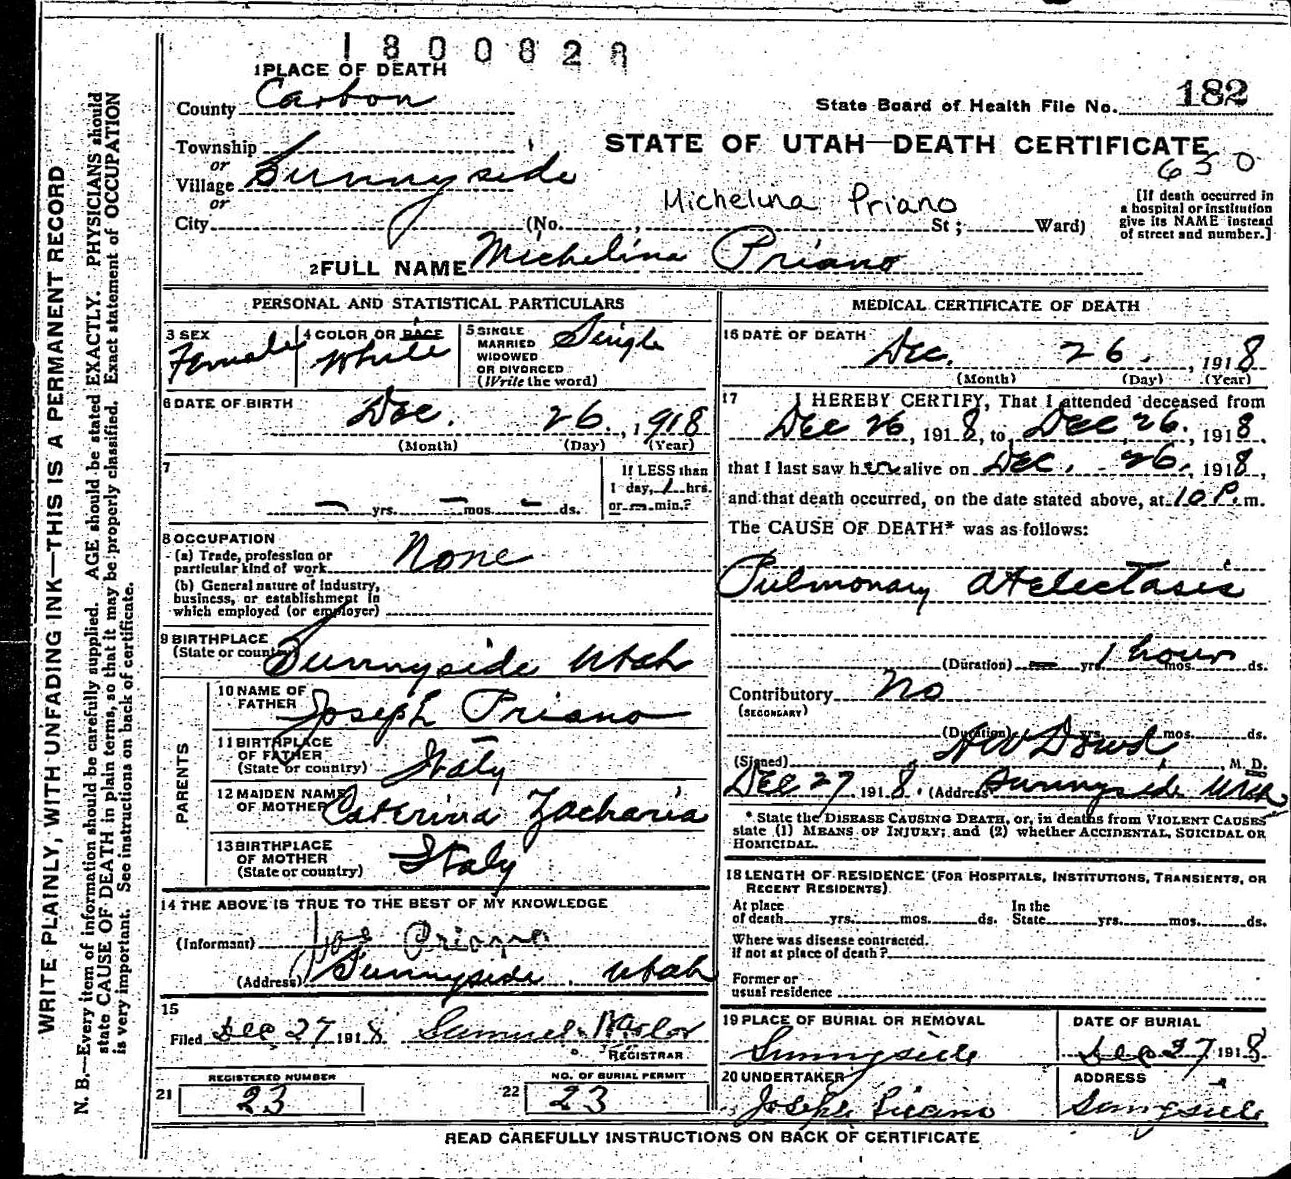 1800828
1 PLACE OF DEATH
County Carbon
State Board of Health File No. 182
Township
or
Village Sunnyside
or
City (No. , St; Ward)
STATE OF UTAH—DEATH CERTIFICATE
630
Michelina Priano
[If death occurred in
a hospital or institution
give its NAME instead
of street and number.]
2 FULL NAME Michelina Priano
PERSONAL AND STATISTICAL PARTICULARS
3 SEX
Female
4 COLOR OR RACE
White
5 SINGLE
MARRIED
WIDOWED
OR DIVORCED
(Write the word)
Single
6 DATE OF BIRTH
Dec. 26. , 1918
(Month) (Day) (Year)
7
— yrs. — mos. — ds.
If LESS than
1 day, 1 hrs.
or — min.?
8 OCCUPATION
(a) Trade, profession or
particular kind of work None
(b) General nature of industry,
business, or establishment in
which employed (or employer)
9 BIRTHPLACE
(State or country) Sunnyside Utah
PARENTS
10 NAME OF
FATHER Joseph Priano
11 BIRTHPLACE
OF FATHER
(State or country) Italy
12 MAIDEN NAME
OF MOTHER Caterina Zacharia
13 BIRTHPLACE
OF MOTHER
(State or country) Italy
14 THE ABOVE IS TRUE TO THE BEST OF MY KNOWLEDGE
(Informant) Joe Priano
(Address) Sunnyside Utah
15
Filed Dec 27 1918 Samuel
REGISTRAR
REGISTERED NUMBER
21 23
NO. OF BURIAL PERMIT
22 23
MEDICAL CERTIFICATE OF DEATH
16 DATE OF DEATH
Dec. 26. , 1918
(Month) (Day) (Year)
17 I HEREBY CERTIFY, That I attended deceased from
Dec 26 , 1918, to Dec, 26. , 1918,
that I last saw her alive on Dec. 26. 1918,
and that death occurred, on the date stated above, at 10 P. m.
The CAUSE OF DEATH* was as follows:
Pulmonary Atelectasis
(Duration) — yrs. 1 hour mos. ds.
Contributory No
(SECONDARY)
(Duration) yrs. mos. ds.
(Signed) A W Dowd , M. D.
Dec 27 , 1918. (Address Sunnyside Utah
* State the DISEASE CAUSING DEATH, or, in deaths from VIOLENT CAUSES
state (1) MEANS OF INJURY; and (2) whether ACCIDENTAL, SUICIDAL OR
HOMICIDAL.
18 LENGTH OF RESIDENCE (FOR HOSPITALS, INSTITUTIONS, TRANSIENTS, OR
RECENT RESIDENTS)
At place
of death yrs. mos. ds.
In the
State yrs. mos. ds.
Where was disease contracted.
if not at place of death?
Former or
usual residence
19 PLACE OF BURIAL OR REMOVAL
Sunnyside
DATE OF BURIAL
Dec 27 1918
20 UNDERTAKER
Joseph Priano
ADDRESS
Sunnyside
READ CAREFULLY INSTRUCTIONS ON BACK OF CERTIFICATE
WRITE PLAINLY, WITH UNFADING INK—THIS IS A PERMANENT RECORD
N. B.—Every item of information should be carefully supplied. AGE should be stated EXACTLY. PHYSICIANS should
state CAUSE OF DEATH in plain terms, so that it may be properly classified. Exact statement of OCCUPATION
is very important. See instructions on back of certificate.